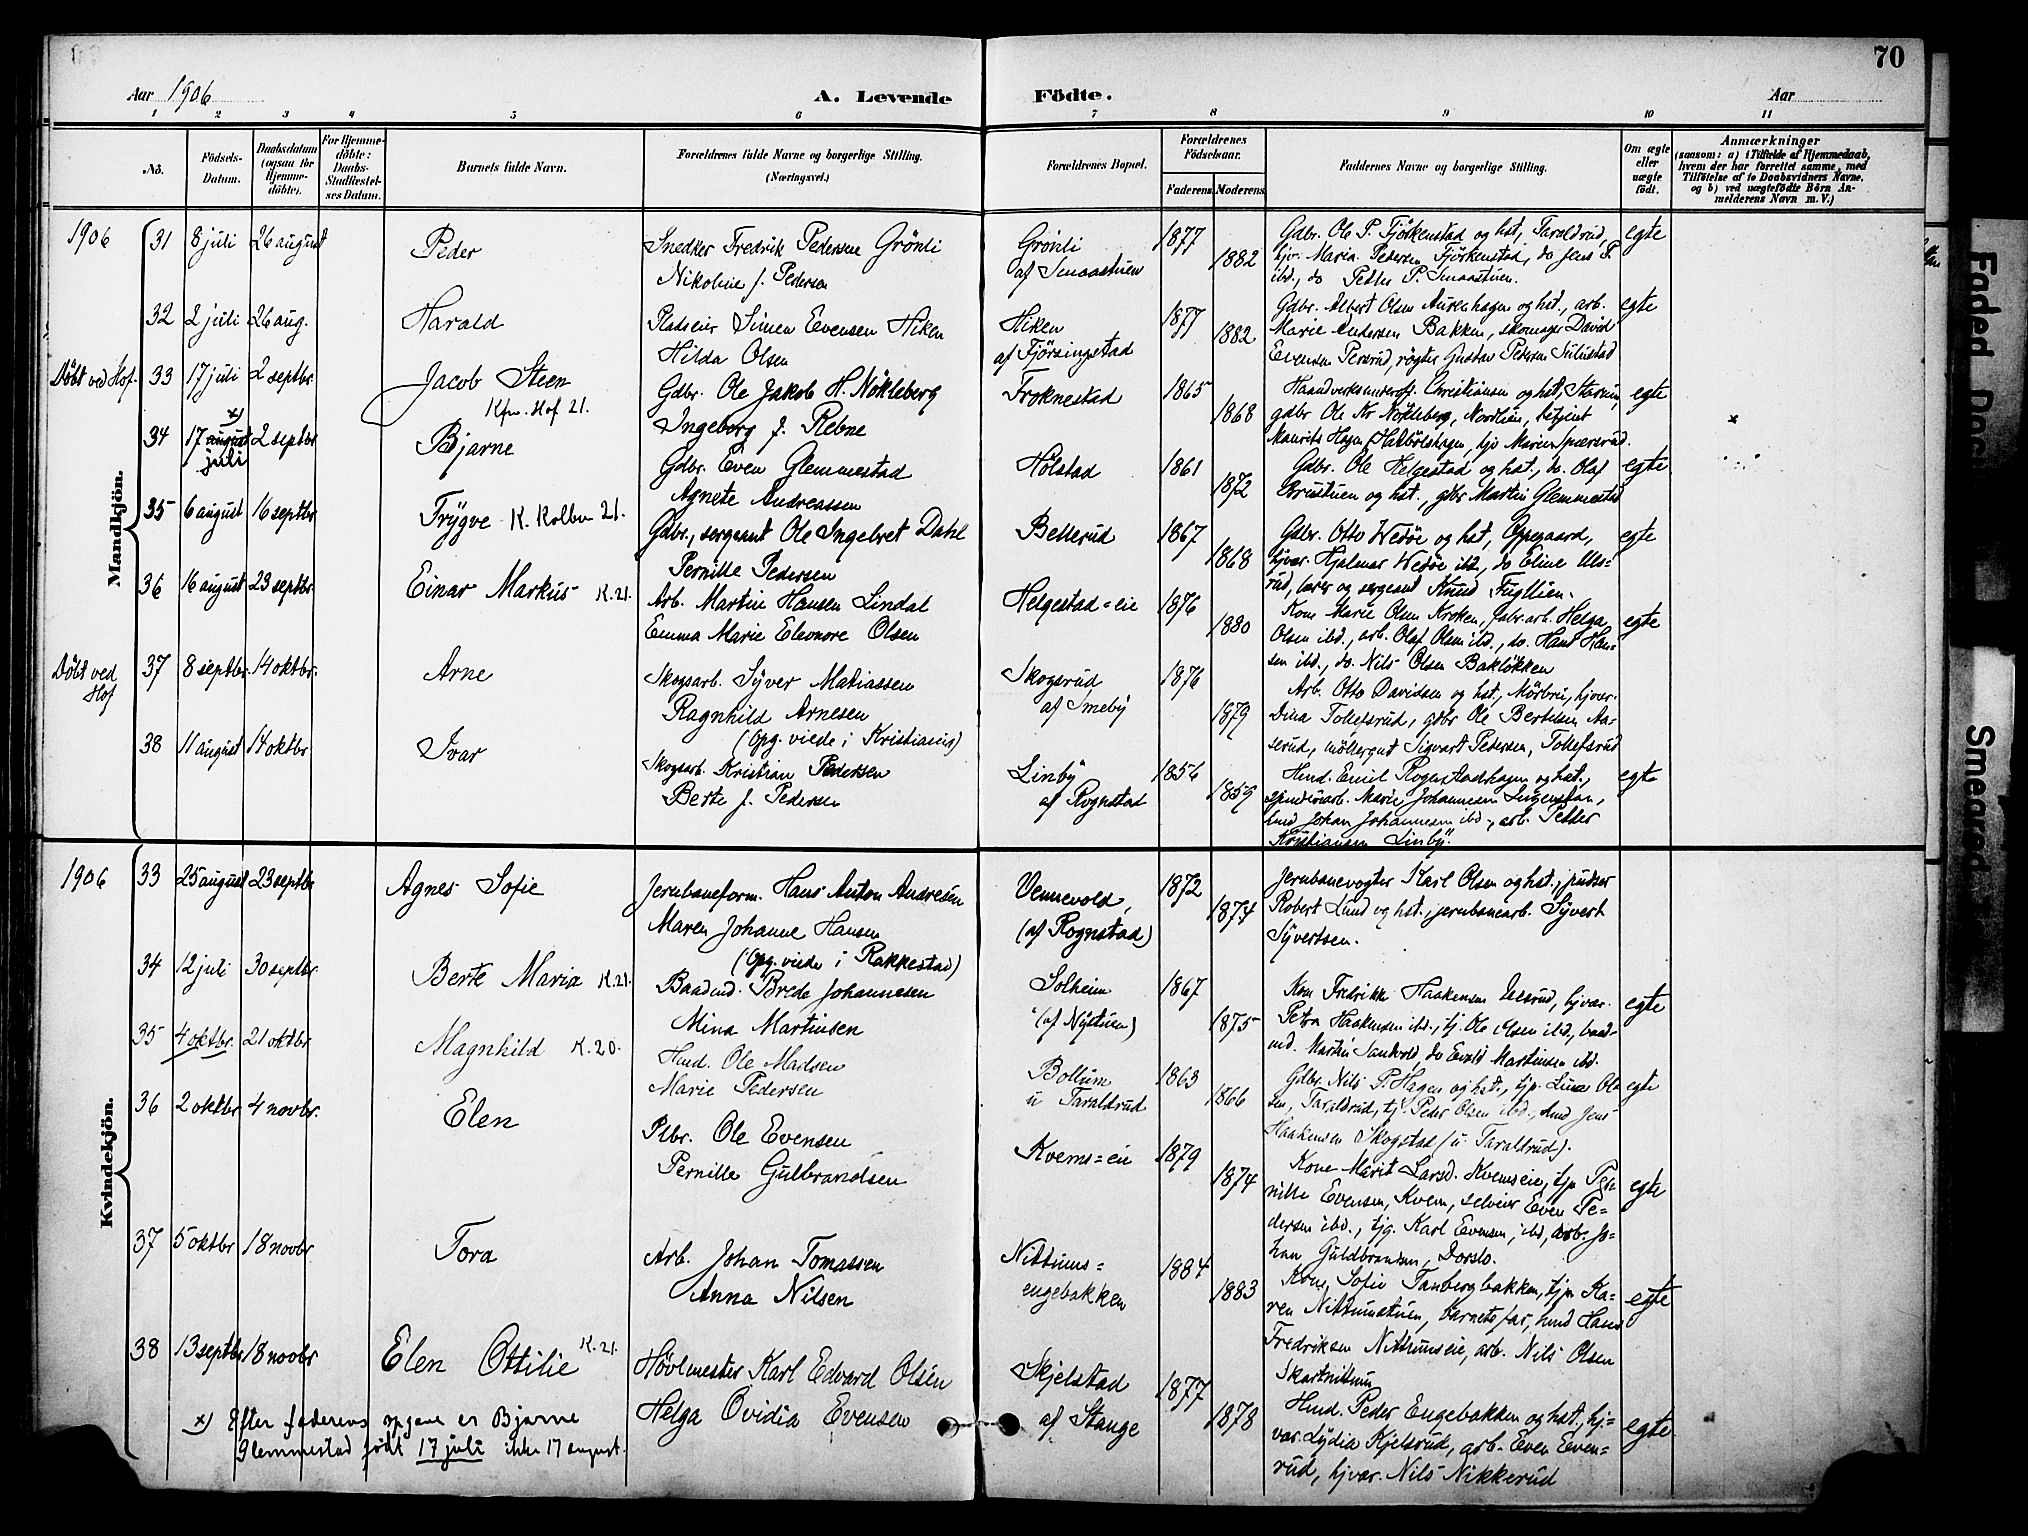 70
Aar 1906
A. Levende Fødte.
Aar
1 2 3 4 5 6 7 8 9 10 11
No.
Fødsels-Datum.
Daabsdatum (ogsaa for Hjemmedøbte).
For Hjemmedøbte: Daabs-Stadfestelses Datum.
Barnets fulde Navn.
Forældrenes fulde Navne og borgerlige Stilling.
(Næringsvei.)
Forældrenes Bopæl.
Forældrenes Fødselsaar.
Faderens Moderens
Faddernes Navne og borgerlige Stilling.
Om ægte eller uægte født.
Anmærkninger
(saasom: a) i Tilfælde af Hjemmedaab,
hvem der har forrettet samme, med
Tilføielse af to Daabsvidners Navne,
og b) ved uægtefødte Børn Anmelderens Navn m. V.)
Mandkjön.
1906 31 8 juli 26 august Peder
Snedker Fredrik Pedersen Grönli
Nikoline f. Pedersen
Grönli
af Smaastuen
1877 1882
Gdbr. Ole P. Fjörkenstad og hst, Taraldrud,
hjv. Maria Pedersen Fjörkenstad, do Jens P.
ibd., do Petter P. Smaastuen.
egte
32 2 juli 26 aug. Harald
Pladseier Simen Evensen Hiken
Hilda Olsen
Hiken
af Fjörsingstad
1877 1882
Gdbr. Albert Olsen Aurenhagen og hst, arb.
Marie Andersen Bakken, skomager David
Evensen Persrud, rögter Gustav Pedersen Sulustad
egte
Döbt ved Hof. 33 17 juli 2 septbr. Jacob Steen
Kfm. Hof 21.
Gdbr. Ole Jakob H. Nökleberg
Ingeborg f. Rebne
Froknestad
1865 1868
Haandverksunderof. Christiansen og hst,
gdbr Ole Kr Nökleberg, Nordlien, betjent
Maurits Hagen, Hakbölshagen, tjp Maren
egte
x
34 17 x) august juli 2 septbr Bjarne
Gdbr. Even Glemmestad
Agnete Andreassen
Hölstad
1861 1872
Gdbr. Ole Helgestad og hst, do. Olaf
Brustuen og hst., gdbr Martin Glemmestad
egte
35 6 august 16 septbr. Trygve K. Kolbu 21.
Gdbr., sergeant Ole Ingebret Dahl
Pernille Pedersen
Bellerud
1867 1868
Gdbr. Otto Wedöe og hst, Oppegaard,
hjvar. Hjalmar Wedöe ibd, do Eline Uls-
rud, lærer og sergeant Knud Fuglien.
egte
36 16 august 23 septbr. Einar Markus K. 21.
Arb. Martin Hansen Lindal
Emma Marie Eleonore Olsen
Helgestad=eie
1876 1880
Kone Marie Olsen Kroken, fabr.arb. Helga
Olsen ibd., arb. Olaf Olsen ibd., do. Hans Han-
sen ibd., do. Nils Olsen Baklökken
egte
Döbt ved Hof 37 8 septbr. 14 oktbr. Arne
Skogsarb. Syver Matiassen
Ragnhild Arnesen
(Opg. viede i Kristiania)
Skogsrud
af Smeby
1876 1879
Arb. Otto Davidsen og hst, Mörbru, hjvar.
Dina Tollefsrud, gdbr Ole Bertelsen Aa-
serud, möllergut Sigvart Pedersen, Tollefsrud
38 11 august 14 oktbr Ivar
Skogsarb. Kristian Pedersen
Berte f. Pedersen
Linby
af Rognstad
1854 1859
Hmd. Emil Rognstadhagen og hst.,
arb. Marie Johannesen
hmd Johan Johannesen ibd., arb. Petter
Kristiansen Linby.
egte
Kvindekjön.
1906 33 25 august 23 septbr Agnes Sofie
Jernbaneform. Hans Anton Andresen
Maren Johanne Hansen
(Opg. viede i Rakkestad)
Vennevold,
(af Rognstad)
1872 1874
Jernbanevogter Karl Olsen og hst., pudser
Robert Lund og hst., jernbanearb. Syvert
Syvertsen.
34 12 juli 30 septbr. Berte Maria K. 21.
Baadmd. Brede Johannesen
Mina Martinsen
Solheim
(af Nystuen)
1867 1875
Kone Fredrikke Haakensen, hjvar.
Petra Haakensen ibd., tj. Ole Olsen ibd., baad-
md. Martin Sandvold, do Evald Martinsen ibd.
egte
35 4 oktbr. 21 oktbr Magnhild K. 20.
Hmd. Ole Madsen
Marie Pedersen
Bollum
u Taraldrud
1863 1866
Gdbr. Nils P. Hagen og hst., tjp. Lina Ol-
sen, Taraldrud, tj. Peder Olsen ibd., hmd Jens
Haakensen Skogstad (u. Taraldrud).
egte
36 2 oktbr 4 novbr. Elen
Plbr. Ole Evensen
Pernille Gulbrandsen
Kvems=eie
1879 1874
Kone Marit Larsd. Kvemseie, tjp Per-
nille Evensen, Kvem, selveier Even Pe-
dersen ibd., tjg. Karl Evensen, ibd, arb. Jo-
han Guldbrandsen, Dorslo.
egte
37 5 oktbr 18 novbr Tora
Arb. Johan Tomassen
Anna Nilsen
Nittums=
engebakken
1884 1883
Kone Sofie Tanbergbakken, tjp. Ka-
ren Nittumstuen, barnets far, hmd Hans
Fredriksen Nittumseie, arb. Nils Olsen
Skartnittum
egte
38 13 septbr 18 novbr Elen Ottilie K. 21.
Hövlmester Karl Edvard Olsen
Helga Ovidia Evensen
Skjelstad
af Stange
1877 1878
Hmd. Peder Engebakken og hst., hj-
var. Lydia Kjelsrud, arb. Even Even-
rud, hjvar. Nils Nikkerud
egte
x) Efter faderens opgave er Bjarne
Glemmestad født 17 juli ikke 17 august.
Faded
Smeared